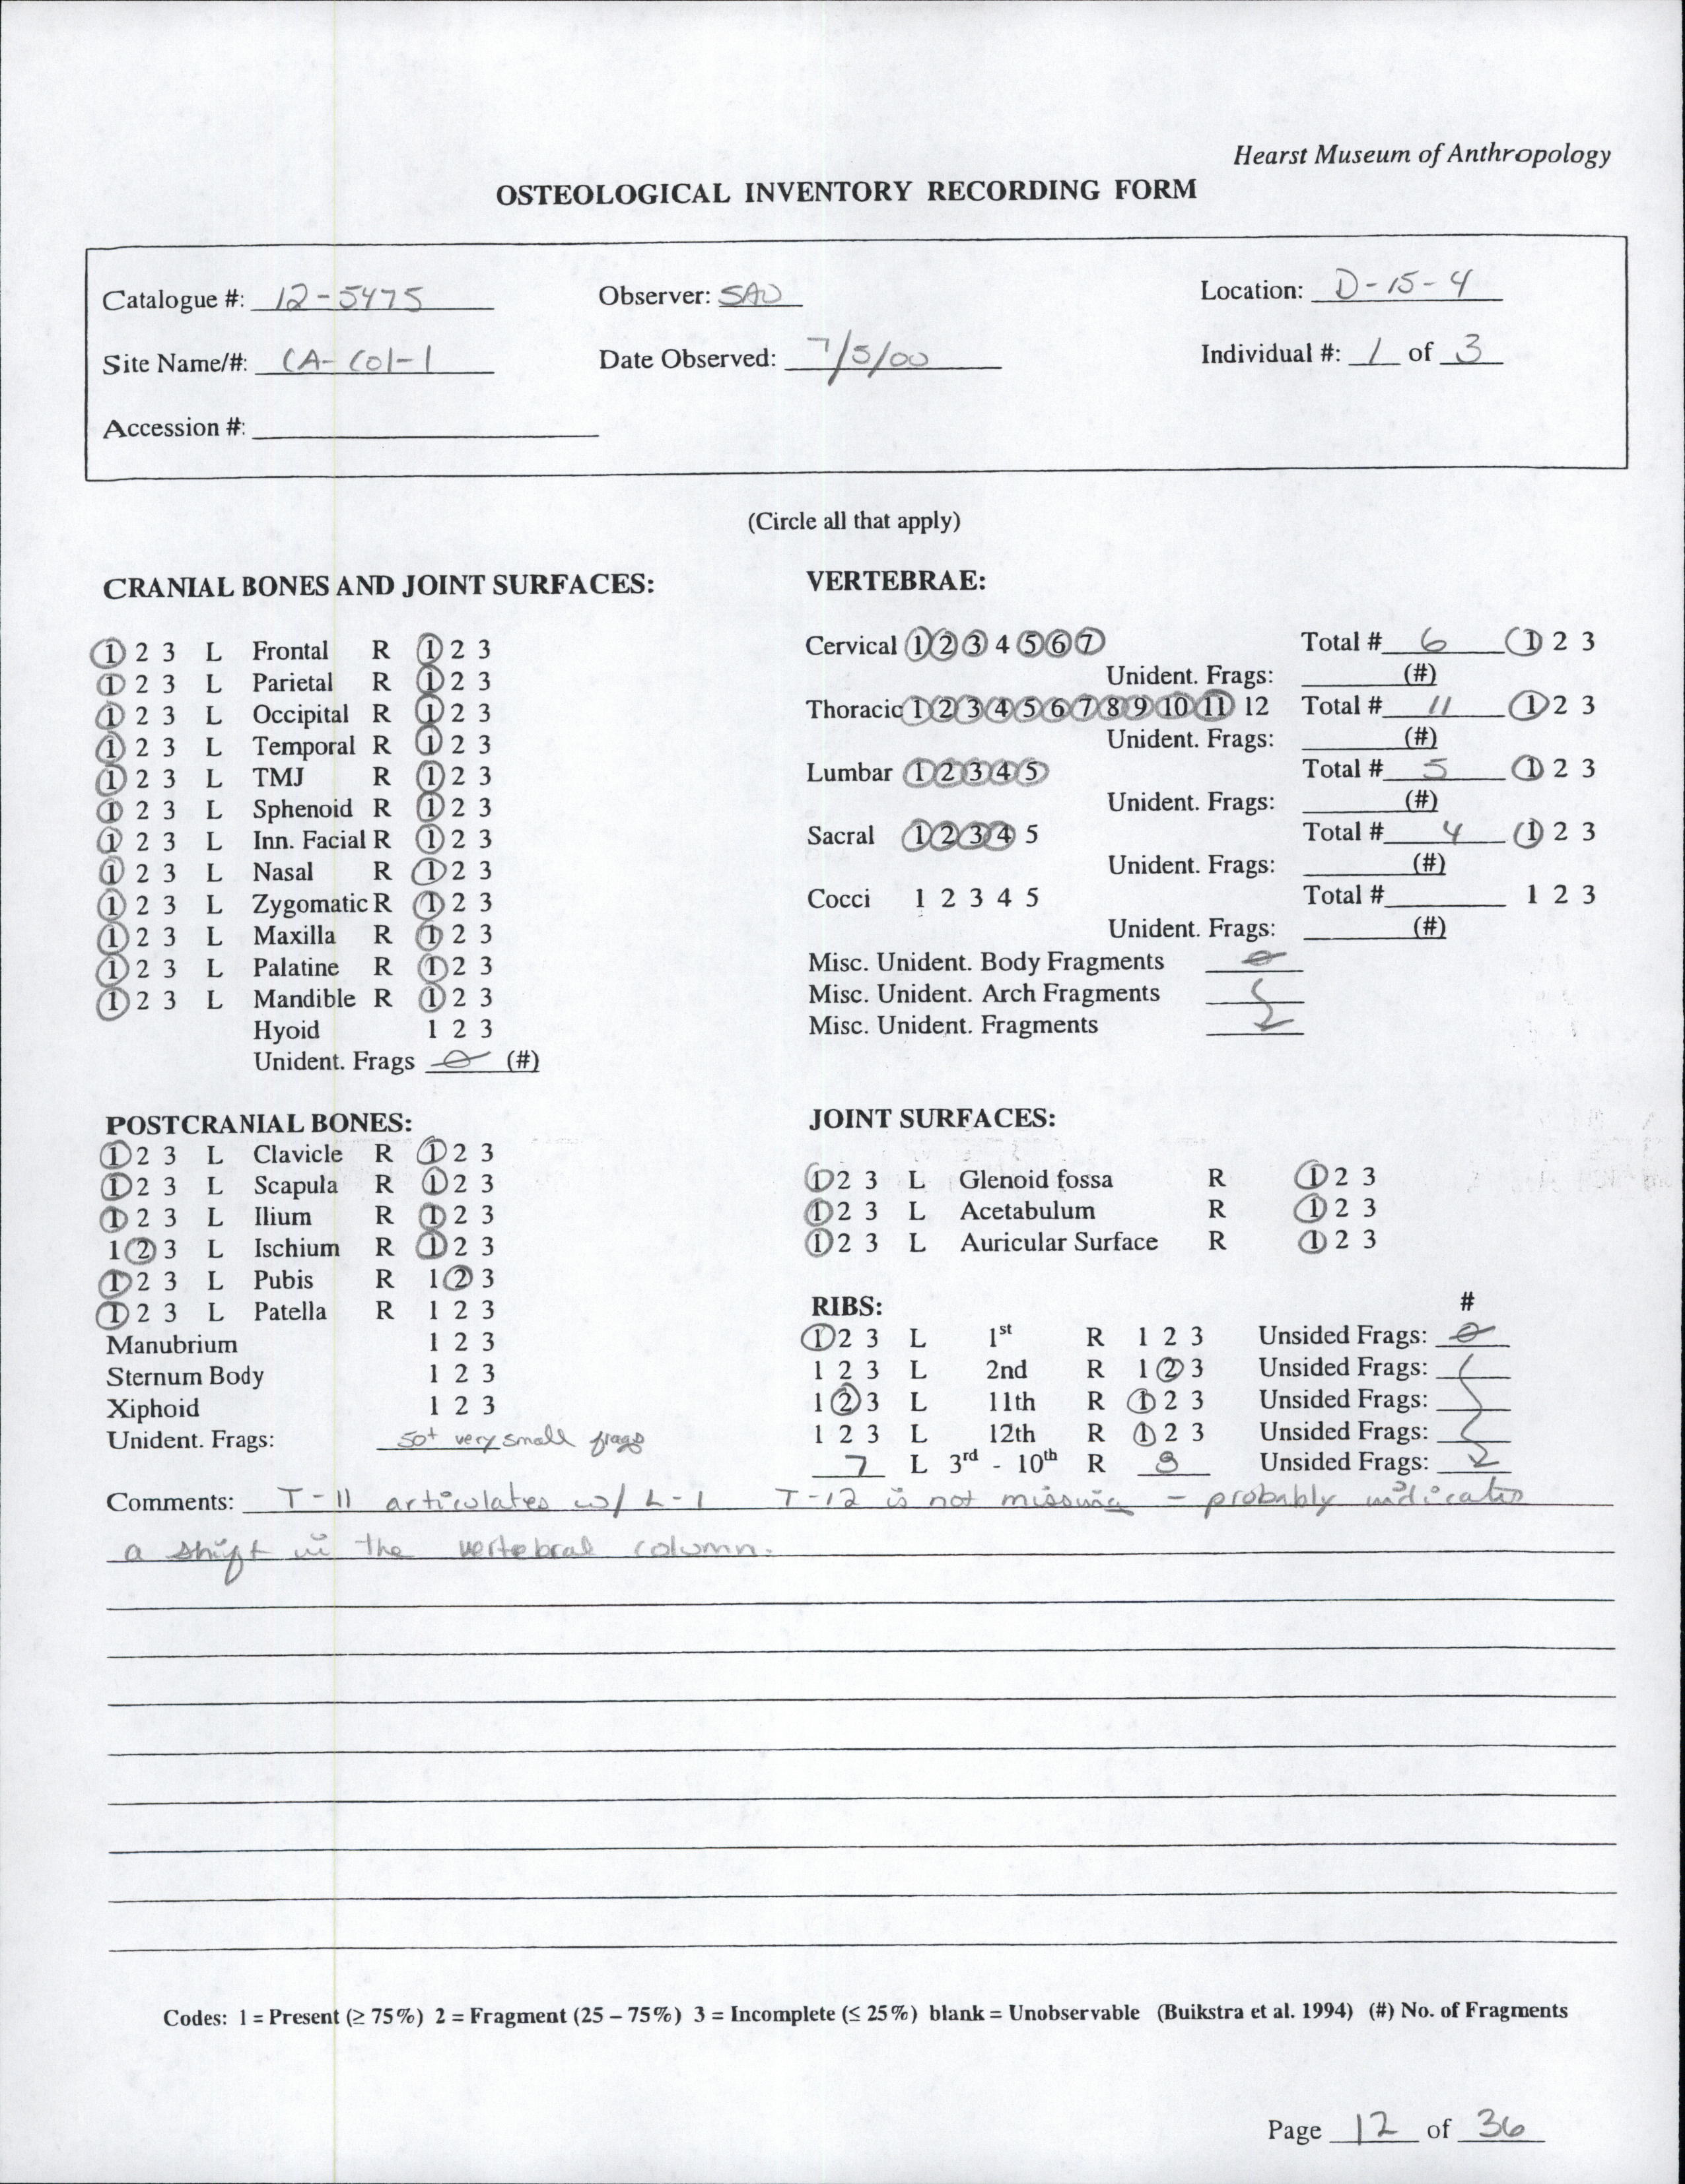 Hearst Museum of Anthropology
OSTEOLOGICAL INVENTORY RECORDING FORM
Catalogue #: 12-5475 Observer: SAO Location: D-15-4
Site Name/#: CA-Col-1 Date Observed: 7/5/00 Individual #: 1 of 3
Accession #:
(Circle all that apply)
CRANIAL BONES AND JOINT SURFACES:
1 2 3 L Frontal R 1 2 3
1 2 3 L Parietal R 1 2 3
1 2 3 L Occipital R 1 2 3
1 2 3 L Temporal R 1 2 3
1 2 3 L TMJ R 1 2 3
1 2 3 L Sphenoid R 1 2 3
1 2 3 L Inn. Facial R 1 2 3
1 2 3 L Nasal R 1 2 3
1 2 3 L Zygomatic R 1 2 3
1 2 3 L Maxilla R 1 2 3
1 2 3 L Palatine R 1 2 3
1 2 3 L Mandible R 1 2 3
Hyoid 1 2 3
Unident. Frags 0 (#)
VERTEBRAE:
Cervical 1 2 3 4 5 6 7 Total # 6 1 2 3
Unident. Frags: (#)
Thoracic 1 2 3 4 5 6 7 8 9 10 11 12 Total # 11 1 2 3
Unident. Frags: (#)
Lumbar 1 2 3 4 5 Total # 5 1 2 3
Unident. Frags: (#)
Sacral 1 2 3 4 5 Total # 4 1 2 3
Unident. Frags: (#)
Cocci 1 2 3 4 5 Total # 1 2 3
Unident. Frags: (#)
Misc. Unident. Body Fragments 0
Misc. Unident. Arch Fragments
Misc. Unident. Fragments
POSTCRANIAL BONES:
1 2 3 L Clavicle R 1 2 3
1 2 3 L Scapula R 1 2 3
1 2 3 L Ilium R 1 2 3
1 2 3 L Ischium R 1 2 3
1 2 3 L Pubis R 1 2 3
1 2 3 L Patella R 1 2 3
Manubrium 1 2 3
Sternum Body 1 2 3
Xiphoid 1 2 3
Unident. Frags: 50+ very small frags
JOINT SURFACES:
1 2 3 L Glenoid fossa R 1 2 3
1 2 3 L Acetabulum R 1 2 3
1 2 3 L Auricular Surface R 1 2 3
RIBS: #
1 2 3 L 1st R 1 2 3 Unsided Frags: 0
1 2 3 L 2nd R 1 2 3 Unsided Frags:
1 2 3 L 11th R 1 2 3 Unsided Frags:
1 2 3 L 12th R 1 2 3 Unsided Frags:
7 L 3rd - 10th R 8 Unsided Frags:
Comments: T-11 articulates w/ L-1 T-12 is not missing - probably indicates
a shift in the vertebral column.
Codes: 1 = Present (≥ 75%) 2 = Fragment (25 – 75%) 3 = Incomplete (≤ 25%) blank = Unobservable (Buikstra et al. 1994) (#) No. of Fragments
Page 12 of 36